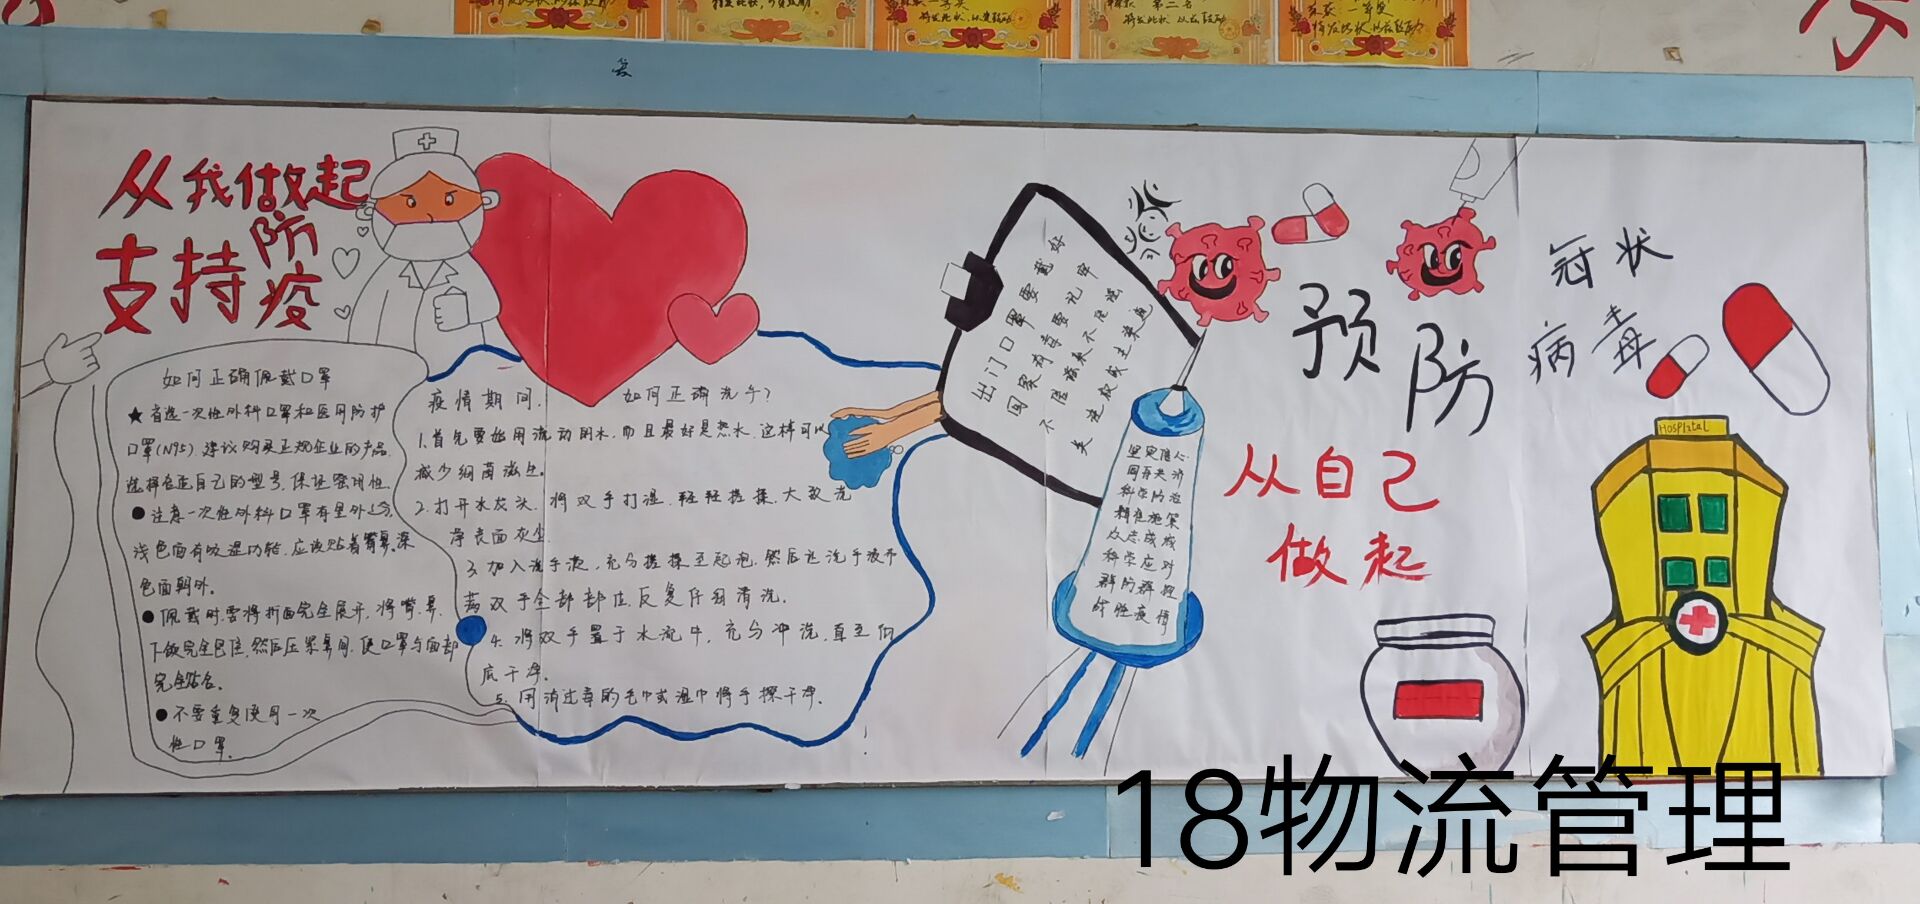 从我做起
支持防疫
如何正确佩戴口罩
★首选一次性外科口罩和医用防护
口罩(N95)建议购买正规企业的产品
选择合适自己的型号,保证密闭性
●注意一次性外科口罩有里外之分
浅色面有吸湿功能,应该贴着嘴鼻,深
色面朝外.
●佩戴时要将折面完全展开,将嘴、鼻、
下颌完全包住,然后压紧鼻夹,使口罩与面部
完全贴合.
●不要重复使用一次
性口罩.
疫情期间.
如何正确洗手?
1.首先要使用流动用水,而且最好是热水,这样可以
减少细菌滋生.
2.打开水龙头,将双手打湿,轻轻搓揉,大致洗
净表面灰尘.
3.加入洗手液,充分搓揉至起泡,然后让洗手液布
满双手全部部位反复仔细清洗.
4.将双手置于水流中,充分冲洗,直至彻
底干净.
5.用消过毒的毛巾或湿巾将手擦干净.
出门口罩要戴好
回家消毒要记牢
坚定信心
同舟共济
科学防治
精准施策
众志成城
科学应对
群防群控
战胜疫情
预防
冠状
病毒
从自己
做起
Hospital
18物流管理